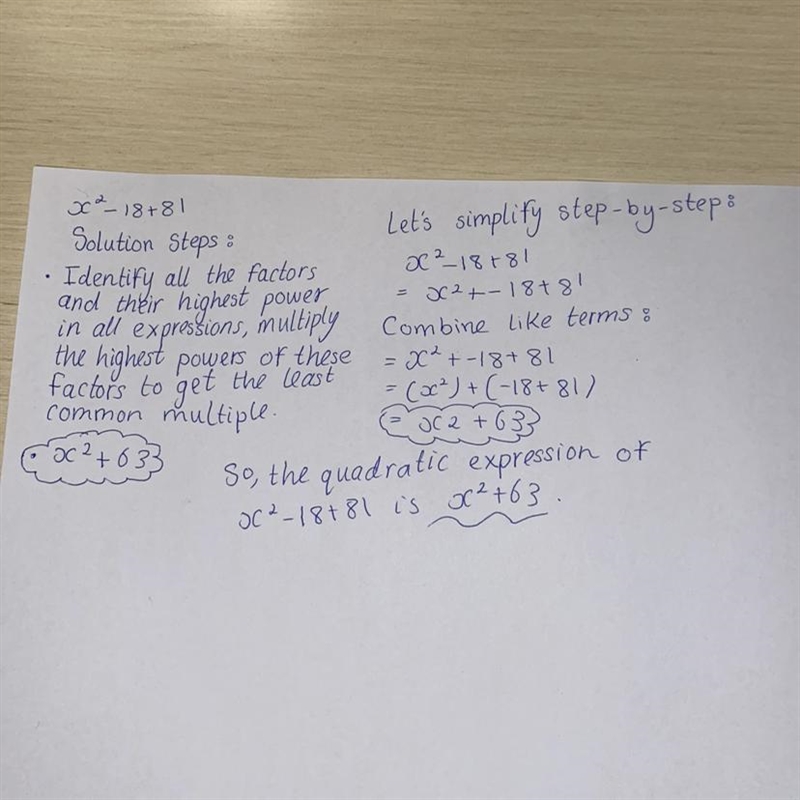 x²-18+81
Solution Steps:
• Identify all the factors
and their highest power
in all expressions, multiply
the highest powers of these
factors to get the least
common multiple.
• x²+63
Let's simplify step-by-step:
x²-18+81
= x²+-18+81
Combine like terms:
= x²+-18+81
= (x²)+(-18+81)
= x2+63
So, the quadratic expression of
x²-18+81 is x²+63.